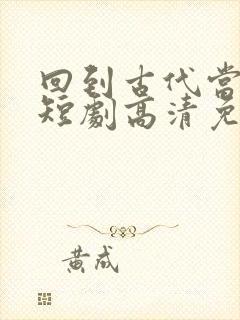 回到古代当
短劇高清免
黄成